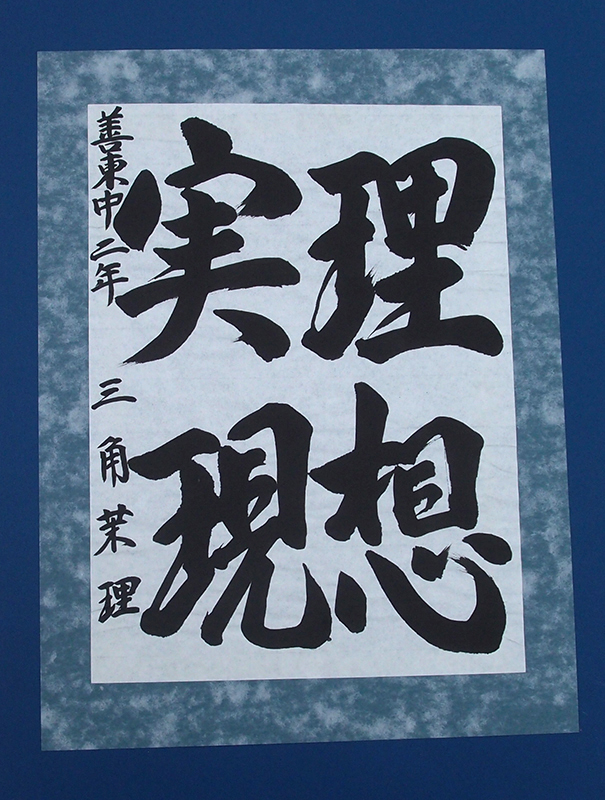 理想
実現
善東中二年 三角茉理